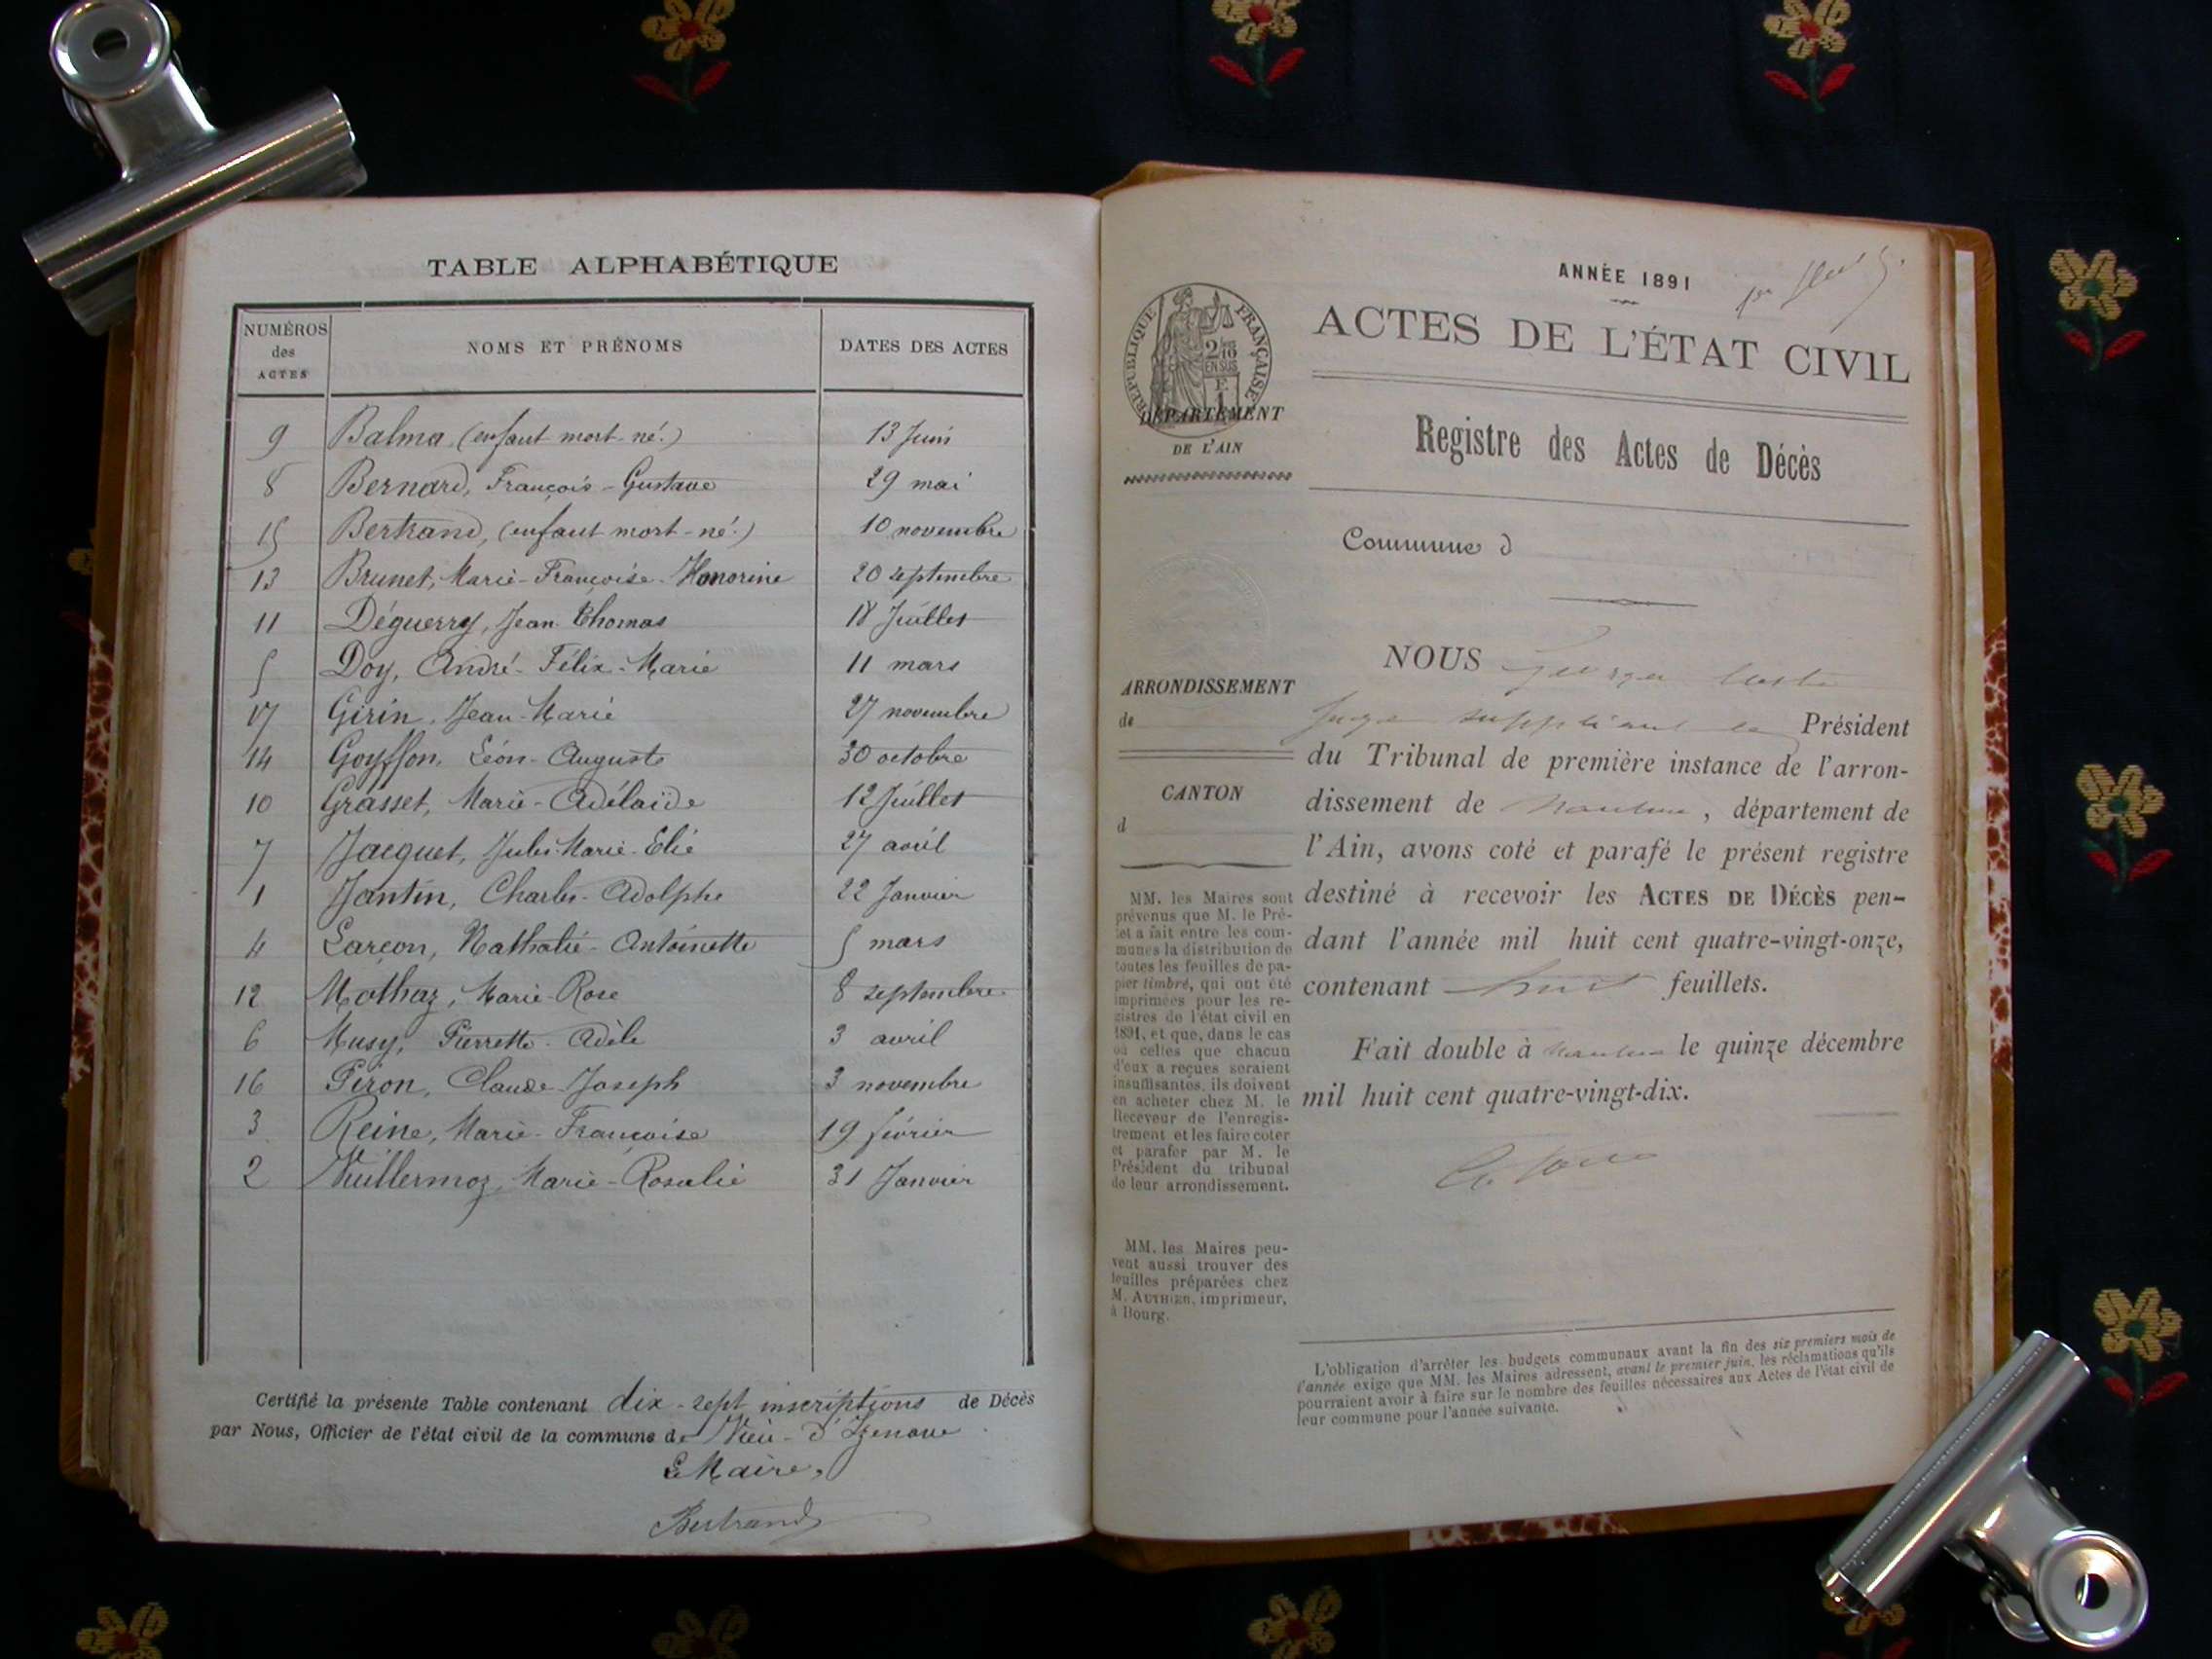 TABLE ALPHABÉTIQUE
NUMÉROS des ACTES NOMS ET PRÉNOMS DATES DES ACTES
9 Balma (enfant mort-né.) 13 Juin
8 Bernard, François-Gustave 29 mai
15 Bertrand, (enfant mort-né.) 10 novembre
13 Brunet, Marie-Françoise-Honorine 20 septembre
11 Déguerry, Jean Thomas 18 Juillet
5 Doy, André-Félix-Marie 11 mars
17 Girin, Jean-Marie 27 novembre
14 Goyffon, Léon-Auguste 30 octobre
10 Grasset, Marie-Adélaïde 12 Juillet
7 Jacquet, Jules-Marie-Elie 27 avril
1 Jantin, Charles-Adolphe 22 Janvier
4 Larçon, Nathalie-Antoinette 5 mars
12 Mathaz, Marie-Rose 8 septembre
6 Musy, Pierrette-Adèle 3 avril
16 Piron, Claude-Joseph 3 novembre
3 Reine, Marie-Françoise 19 février
2 Vuillermoz, Marie-Rosalie 31 Janvier
Certifié la présente Table contenant dix-sept inscriptions de Décès
par Nous, Officier de l'état civil de la commune de Vieu-d'Izenave
Le Maire,
Bertrand
ANNÉE 1891
ACTES DE L'ÉTAT CIVIL
RÉPUBLIQUE FRANÇAISE
2/10
EN SUS
DÉPARTEMENT
DE L'AIN
Registre des Actes de Décès
Commune d
ARRONDISSEMENT
de
CANTON
d
MM. les Maires sont
prévenus que M. le Pré-
fet a fait entre les com-
munes la distribution de
toutes les feuilles de pa-
pier timbré, qui ont été
imprimées pour les re-
gistres de l'état civil en
1891, et que, dans le cas
où celles que chacun
d'eux a reçues seraient
insuffisantes, ils doivent
en acheter chez M. le
Receveur de l'enregis-
trement et les faire coter
et parafer par M. le
Président du tribunal
de leur arrondissement.
MM. les Maires peu-
vent aussi trouver des
feuilles préparées chez
M. AUTHIER, imprimeur,
à Bourg.
NOUS Georges
Juge suppléant le Président
du Tribunal de première instance de l'arron-
dissement de Nantua, département de
l'Ain, avons coté et parafé le présent registre
destiné à recevoir les ACTES DE DÉCÈS pen-
dant l'année mil huit cent quatre-vingt-onze,
contenant huit feuillets.
Fait double à Nantua le quinze décembre
mil huit cent quatre-vingt-dix.
L'obligation d'arrêter les budgets communaux avant la fin des six premiers mois de
l'année exige que MM. les Maires adressent, avant le premier juin, les réclamations qu'ils
pourraient avoir à faire sur le nombre des feuilles nécessaires aux Actes de l'état civil de
leur commune pour l'année suivante.